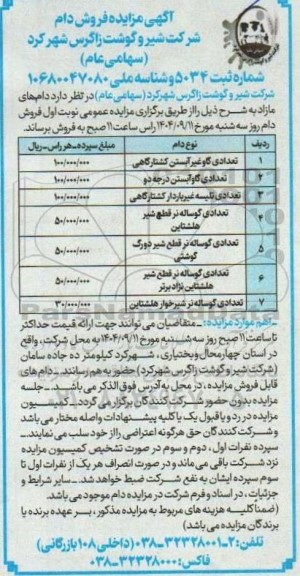 آگهی مزایده فروش دام
شرکت شیر و گوشت زاگرس شهرکرد
(سهامی عام)
شماره ثبت ۵۰۳۴ و شناسه ملی ۱۰۶۸۰۰۴۷۰۸۰
شرکت شیر و گوشت زاگرس شهرکرد (سهامی عام) در نظر دارد دام‌های
مازاد به شرح ذیل را از طریق برگزاری مزایده عمومی نوبت اول فروش
دام روز سه شنبه مورخ ۱۴۰۴/۰۹/۱۱ راس ساعت ۱۱ صبح به فروش برساند.
ردیف نوع دام مبلغ سپرده-هر راس-ریال
۱ تعدادی گاو غیر آبستن کشتارگاهی ۱۰۰/۰۰۰/۰۰۰
۲ تعدادی گاو آبستن درجه دو ۱۰۰/۰۰۰/۰۰۰
۳ تعدادی تلیسه غیر باردار کشتارگاهی ۱۰۰/۰۰۰/۰۰۰
۴ تعدادی گوساله نر قطع شیر هلشتاین ۵۰/۰۰۰/۰۰۰
۵ تعدادی گوساله نر قطع شیر دورگ گوشتی ۵۰/۰۰۰/۰۰۰
۶ تعدادی گوساله نر قطع شیر هلشتاین نژاد برتر ۵۰/۰۰۰/۰۰۰
۷ تعدادی گوساله نر شیرخوار هلشتاین ۳۰/۰۰۰/۰۰۰
ـ اهم موارد مزایده: ـ متقاضیان می توانند جهت ارائه قیمت حداکثر
تا ساعت ۱۱ صبح روز سه شنبه مورخ ۱۴۰۴/۰۹/۱۱ به محل شرکت، واقع
در استان چهارمحال وبختیاری، شهرکرد کیلومتر ده جاده سامان
(شرکت شیر و گوشت زاگرس شهرکرد) حضور به هم رسانند. ـ دام های
قابل فروش مزایده، در محل به آدرس فوق الذکر می باشد. ـ جلسه
مزایده بدون حضور شرکت کنندگان برگزار می گردد. ـ کمیسیون
مزایده در رد و یا قبول یک یا کلیه پیشنهادات واصله مختار می باشد
و شرکت کنندگان حق هرگونه اعتراضی را از خود سلب می نمایند. ـ
سپرده نفرات اول، دوم و سوم در صورت تشخیص کمیسیون مزایده
نزد شرکت باقی می ماند و در صورت انصراف هر یک از نفرات اول تا
سوم سپرده ایشان به نفع شرکت ضبط خواهد شد. ـ سایر شرایط و
جزئیات، در اسناد و فرم شرکت در مزایده دام موجود می باشد.
(ضمنا کلیه هزینه های مربوط به مزایده مذکور، بر عهده برنده یا
برندگان مزایده می باشد)
تلفن: ۲-۳۲۳۲۸۰۰۱-۰۳۸ (داخلی ۱۰۸ بازرگانی)
فاکس: ۳۲۳۲۸۰۰۰-۰۳۸